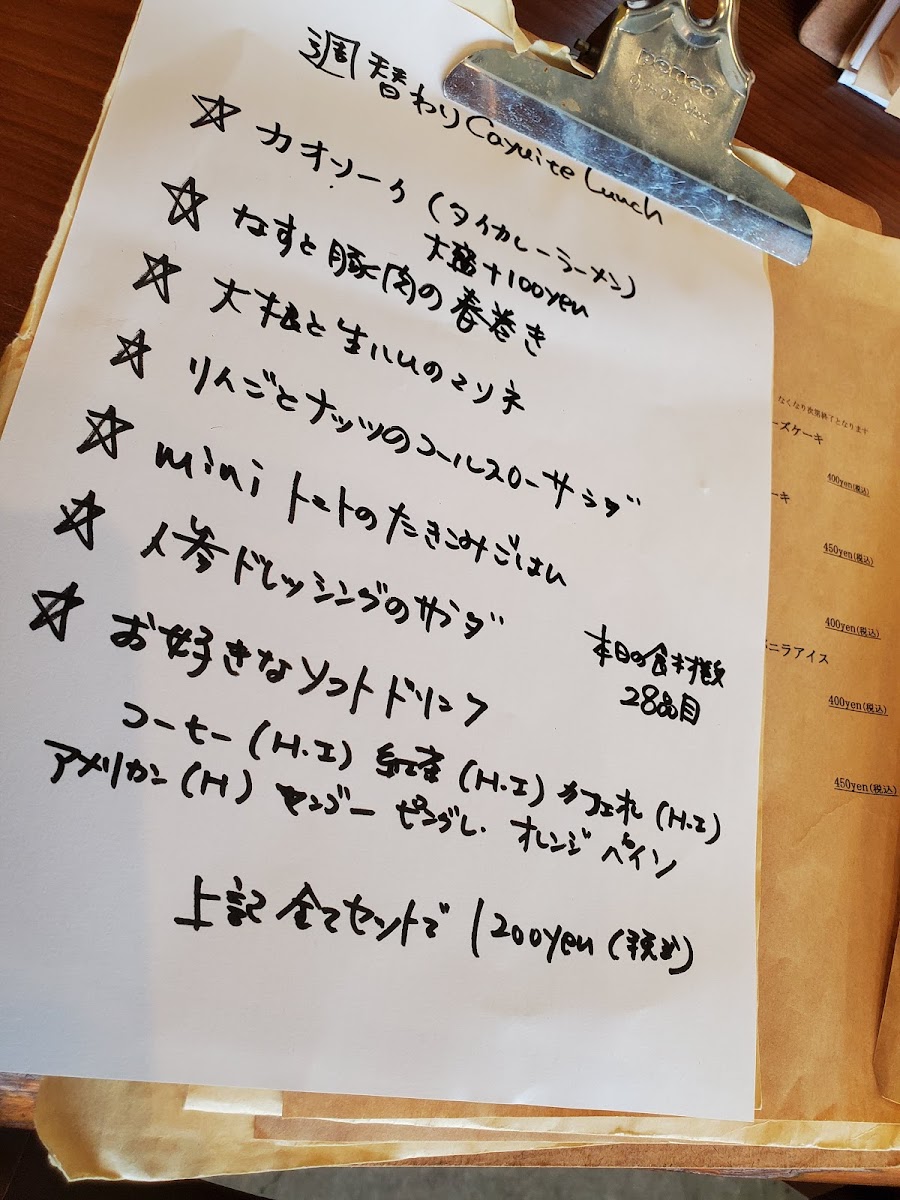 週替わり Cayuite Lunch
☆ カオソーイ (タイカレーラーメン)
大盛+100yen
☆ なすと豚肉の春巻き
☆ 大根と生ハムのマリネ
☆ りんごとナッツのコールスローサラダ
☆ mini トマトのたきこみごはん
☆ 人参ドレッシングのサラダ
☆ お好きなソフトドリンク
本日の食材数
28品目
コーヒー (H・I) 紅茶 (H・I) カフェオレ (H・I)
アメリカン (H) マンゴー ピングレ・オレンジ パイン
上記全てセットで 1200yen (税込)
なくなり次第終了となります
ーズケーキ
400yen(税込)
ーキ
450yen(税込)
400yen(税込)
ニラアイス
400yen(税込)
450yen(税込)
penco